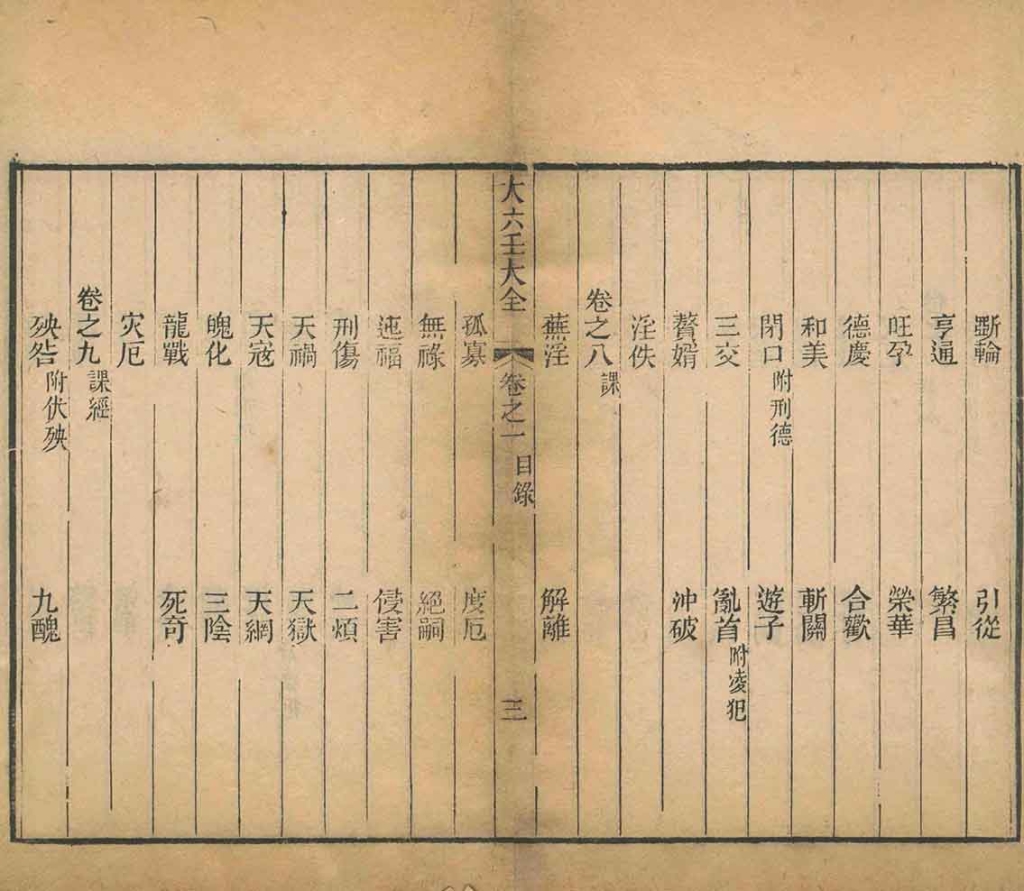 斵輪 引從
亨通 繁昌
旺孕 榮華
德慶 合歡
和美 斬關
閉口附刑德 遊子
三交 亂首附凌犯
贅婿 沖破
淫佚
卷之八課
蕪淫 解離
大六壬大全 卷之一 目錄 三
孤寡 度厄
無祿 絕嗣
迍福 侵害
刑傷 二煩
天禍 天獄
天寇 天網
魄化 三陰
龍戰 死奇
灾厄
卷之九課經
殃咎附伏殃 九醜